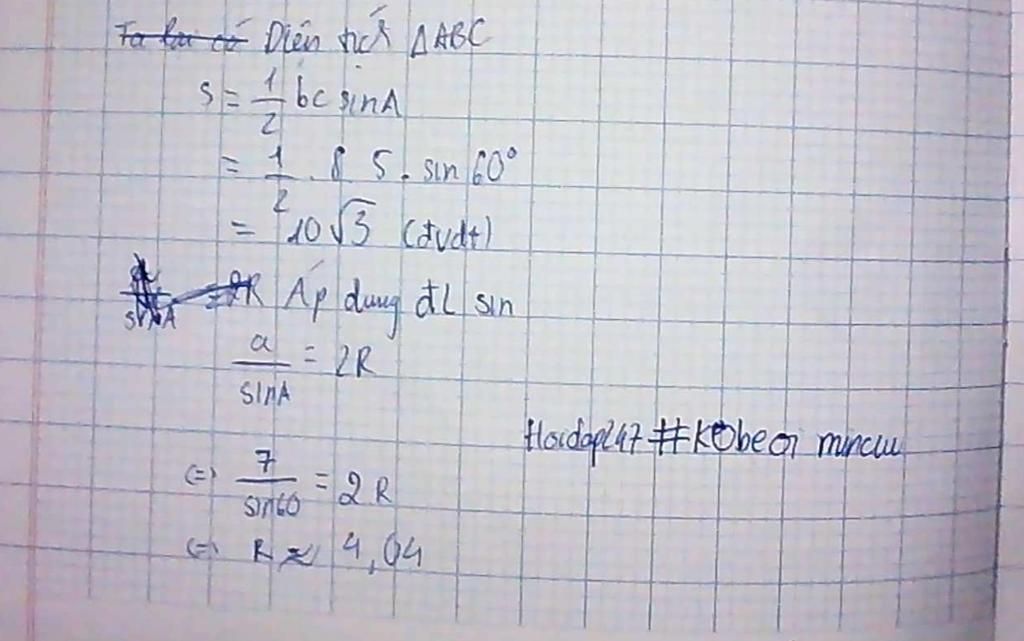 Ta lại có Diện tích ΔABC
S = 1/2 bc sinA
= 1/2 . 8 5 . sin 60°
= 10√3 (đvdt)
sinA = 2R Áp dung đL sin
a/sinA = 2R
Hoidap247 #KObeơi
(=) 7/sin60 = 2R
(=) R ≈ 4,04